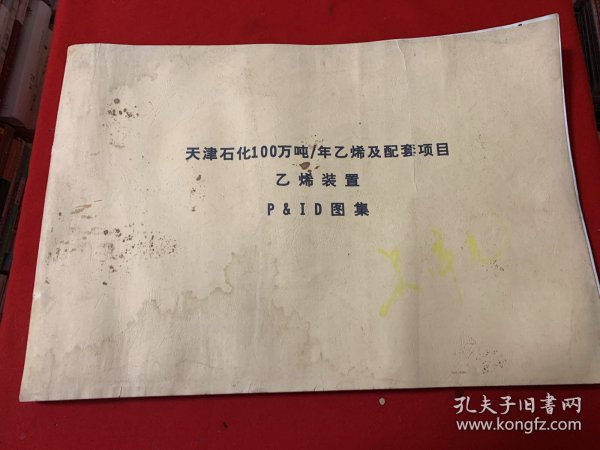 天津石化100万吨/年乙烯及配套项目
乙烯装置
P&ID图集
孔夫子旧书网
www.kongfz.com